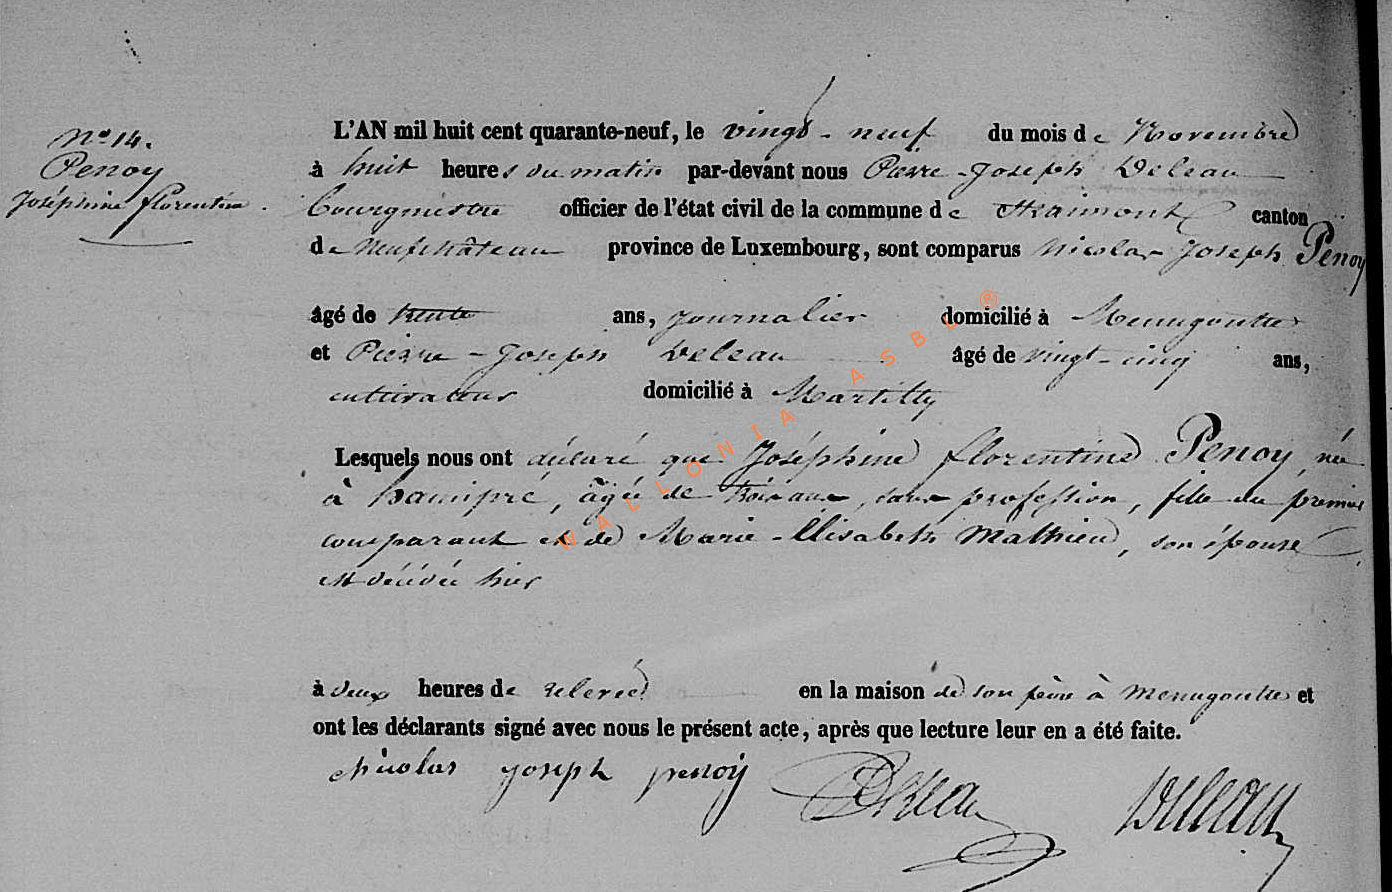 N° 14.
Penoy
Joséphine florentine.
L'AN mil huit cent quarante-neuf, le vingt-neuf du mois de Novembre
à huit heures du matin par-devant nous Pierre-Joseph Deleau
Bourgmestre officier de l'état civil de la commune de Straimont canton
de Neufchâteau province de Luxembourg, sont comparus Nicolas Joseph Penoy
âgé de trente ans, journalier domicilié à Menugoutte
et Pierre-Joseph Deleau âgé de vingt-cinq ans,
cultivateur domicilié à Martilly
Lesquels nous ont déclaré que Joséphine florentine Penoy, née
à hamipré, âgée de trois ans, sans profession, fille du premier
comparant et de Marie-Elisabeth Mathieu, son épouse,
est décédée hier
à deux heures de relevée en la maison de son père à Menugoutte et
ont les déclarants signé avec nous le présent acte, après que lecture leur en a été faite.
Nicolas joseph penoy Deleau Deleau
WALLONIA ASBL ®